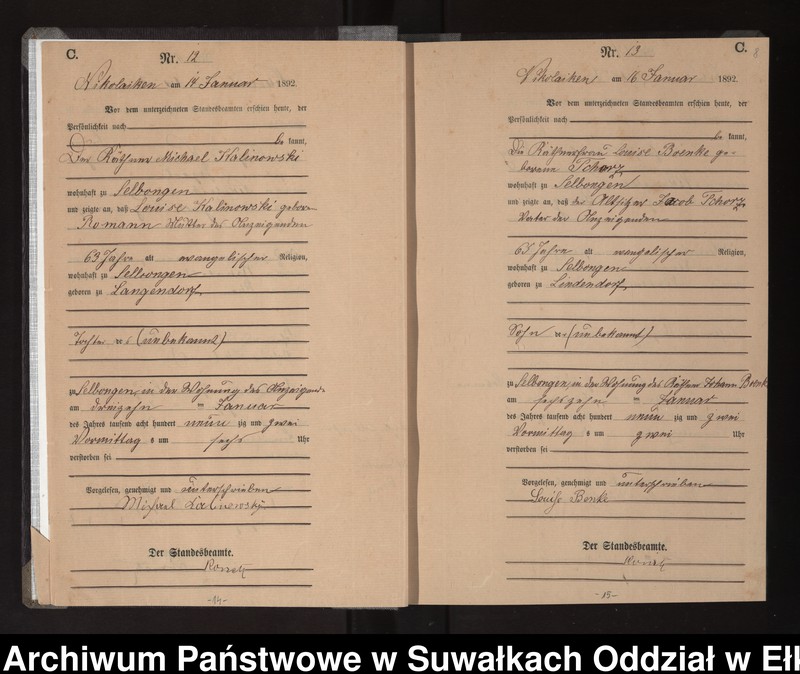 C.
Nr. 12
Nikolaiken am 14 Januar 1892.
Vor dem unterzeichneten Standesbeamten erschien heute, der
Persönlichkeit nach
be kannt,
Der Käthner Michael Kalinowski
wohnhaft zu Selbongen
und zeigte an, daß Louise Kalinowski geboren
Romann Mutter des Anzeigenden
63 Jahre alt evangelischer Religion,
wohnhaft zu Selbongen
geboren zu Langendorf
Tochter des (unbekannt)
zu Selbongen, in der Wohnung des Anzeigen=
am dreizehn ten Januar
des Jahres tausend acht hundert neun zig und zwei
Vormittag s um sechs Uhr
verstorben sei
Vorgelesen, genehmigt und unterschrieben
Michael Kalinowski
Der Standesbeamte.
-14-
C.
8
Nr. 13
Nikolaiken am 16 Januar 1892.
Vor dem unterzeichneten Standesbeamten erschien heute, der
Persönlichkeit nach
be kannt,
Die Käthnerfrau Louise Boenke ge=
borene Tchorz
wohnhaft zu Selbongen
und zeigte an, daß der Altsitzer Jacob Tchorz
Vater der Anzeigenden
65 Jahre alt evangelischer Religion,
wohnhaft zu Selbongen
geboren zu Lindendorf
Sohn des (unbekannt)
zu Selbongen, in der Wohnung des Käthner Johann Boenke
am sechszehn ten Januar
des Jahres tausend acht hundert neun zig und zwei
Vormittag s um zwei Uhr
verstorben sei
Vorgelesen, genehmigt und unterschrieben
Louise Bonke
Der Standesbeamte.
-15-
Archiwum Państwowe w Suwałkach Oddział w Ełk